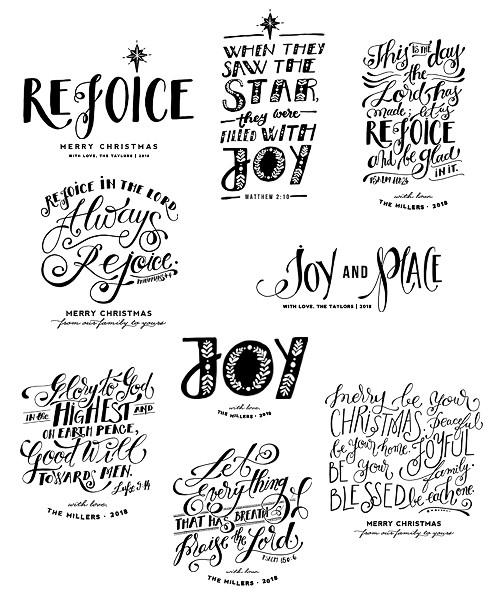 REJOICE
MERRY CHRISTMAS
WITH LOVE, THE TAYLORS | 2018
WHEN THEY
SAW THE
STAR,
they were
FILLED WITH
JOY
MATTHEW 2:10
This IS THE day
the
Lord has
made; let us
REJOICE
and be glad
IN IT.
PSALM 118:24
with love,
THE MILLERS • 2018
REJOICE IN THE LORD
Always
Rejoice.
PHILIPPIANS 4:4
MERRY CHRISTMAS
from our family to yours
JOY AND PEACE
WITH LOVE, THE TAYLORS | 2018
JOY
with love,
THE MILLERS • 2018
Glory to God
IN the HIGHEST AND
ON EARTH PEACE,
Good Will
TOWARDS MEN.
Luke 2:14
with love,
THE MILLERS • 2018
Let
everything
THAT HAS BREATH
Praise the Lord
PSALM 150:6
with love,
THE MILLERS • 2018
merry be your
CHRISTMAS, peaceful
be your home. JOYFUL
BE your family.
BLESSED be each one.
MERRY CHRISTMAS
from our family to yours